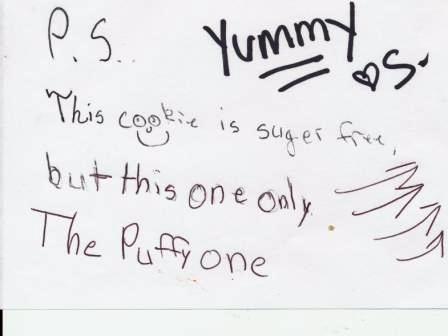 P.S..
Yummy
♡S.
This cookie is suger free,
but this one only
The Puffy one